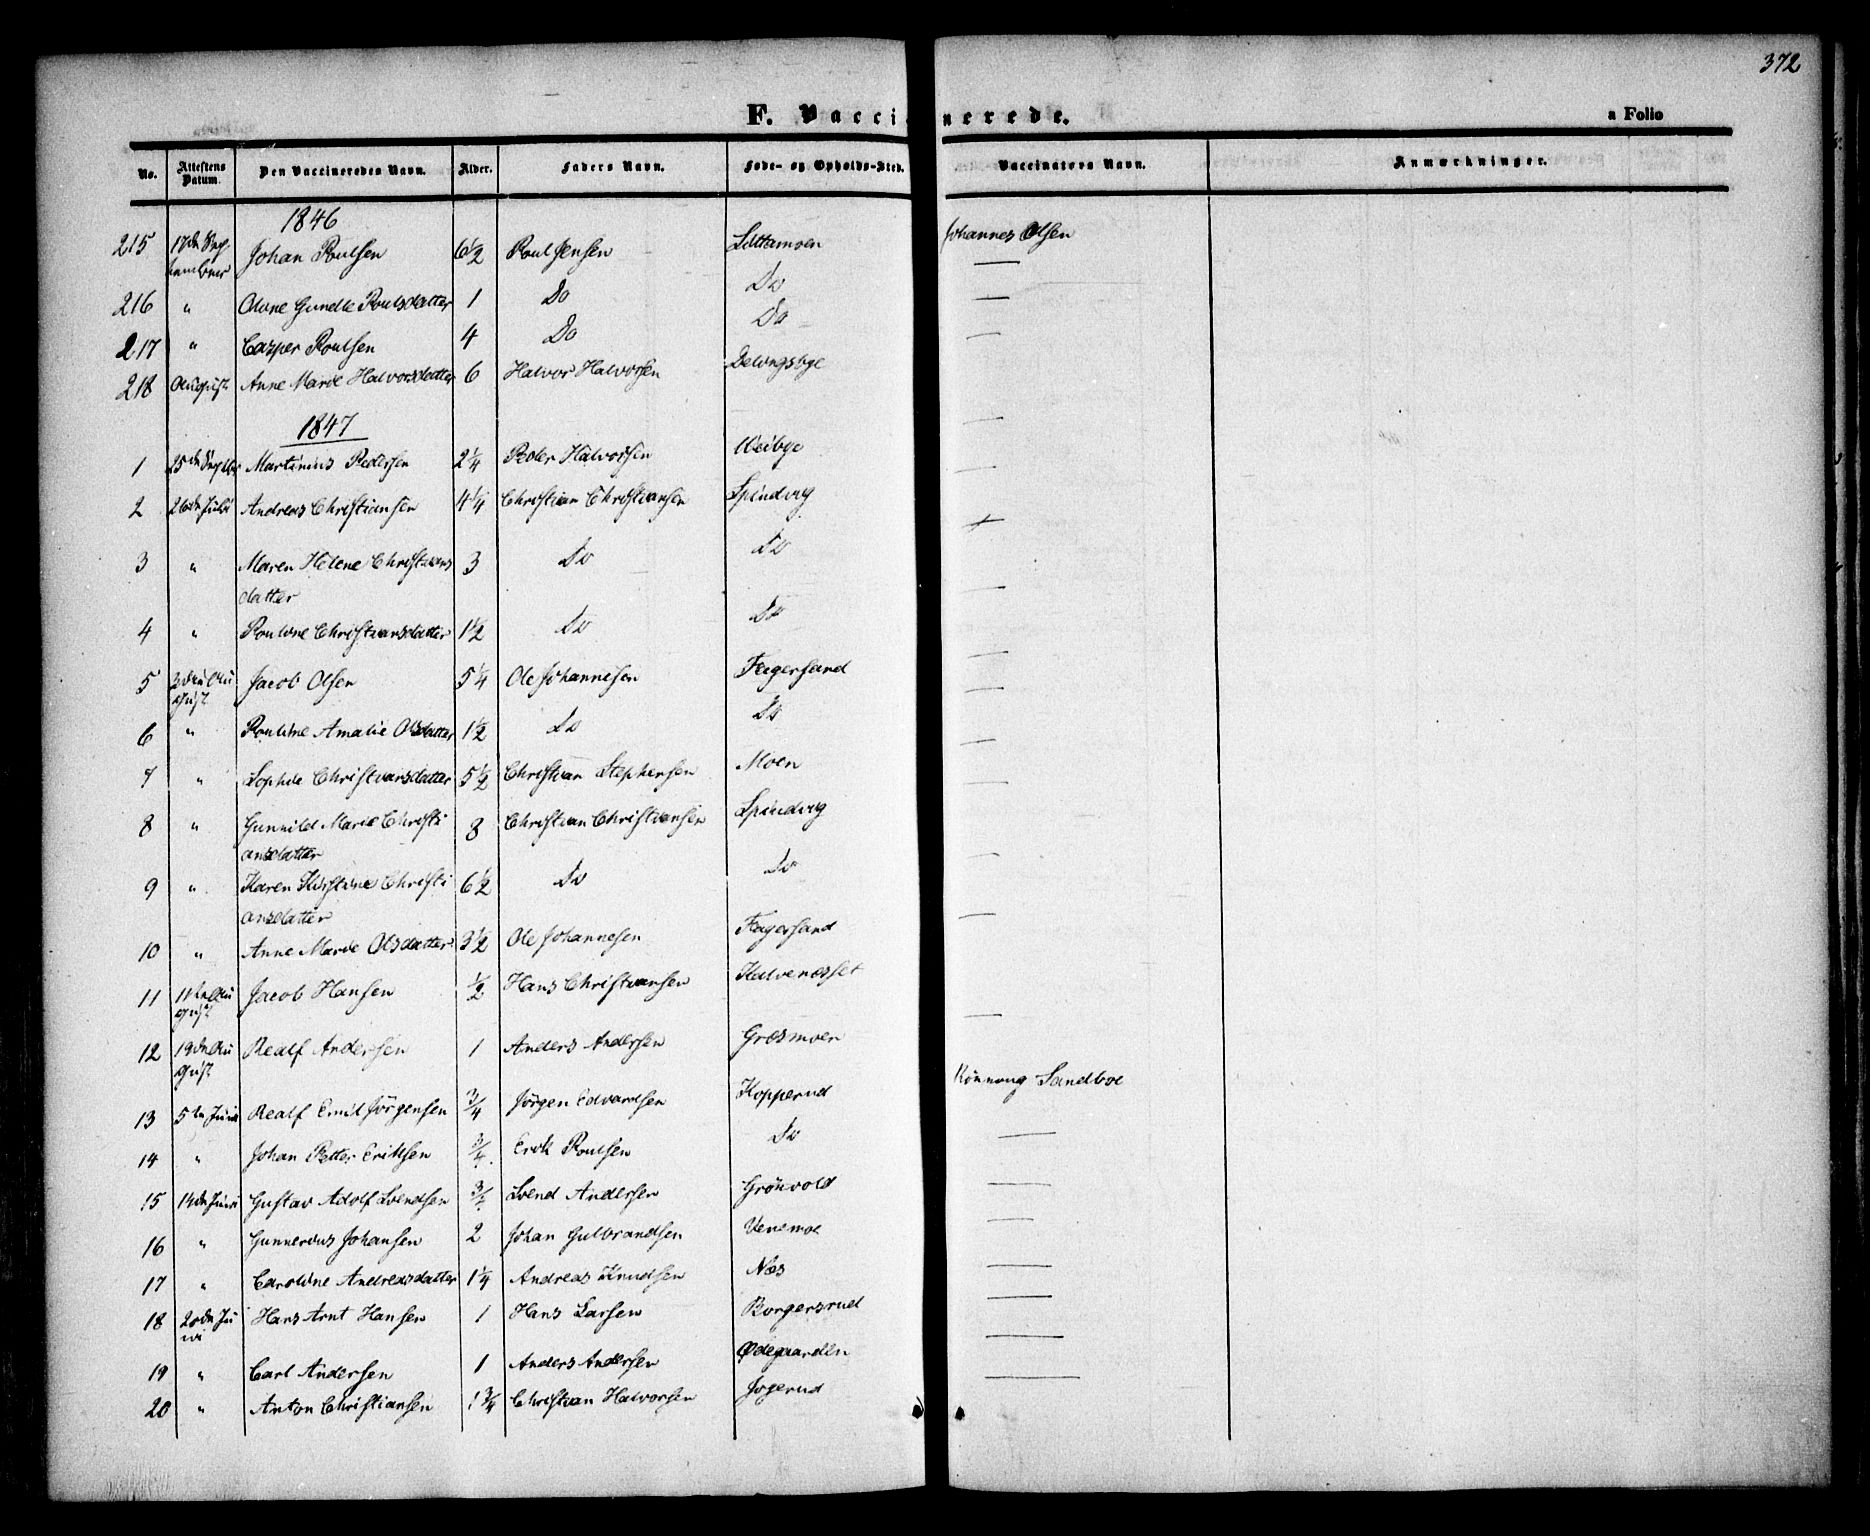 372
F. Vaccinerede.
a Folio
No. Attestens Datum. Den Vaccineredes Navn. Alder. Faders Navn. Føde- og Opholds-Sted. Vaccinators Navn. Anmærkninger.
1846
215 17de Sep- Johan Poulsen 6½ Poul Jensen Johannes Olsen
tember
216 " Gunelle Poulsdatter 1 Do Do —
217 " Casper Poulsen 4 Do Do —
218 August Anne Marie Halvorsdatter 6 Halvor Halvorsen —
1847
1 25de Martinius Pedersen 2¼ Peder Halvorsen Weibye —
2 26de Juli Andreas Christiansen 4¼ Christian Christiansen Spindvig —
3 " Maren Helene Christians 3 Do Do —
datter
4 " Pouline Christiansdatter 1½ Do Do —
5 Au Jacob Olsen 5¼ Ole Johannesen Fagersand —
gust
6 " Pouline Amalie Olsdatter 1½ Do Do —
7 " Sophie Christiansdatter 5½ Christian Stephensen Moen —
8 " Gunnild Marie Christi 8 Christian Christiansen Spindvig —
ansdatter
9 " Karen Kirstine Christi 6½ Do Do —
ansdatter
10 " Anne Marie Olsdatter 3½ Ole Johannesen Fagersand —
11 11te Au Jacob Hansen ½ Hans Christiansen Kalvenæsset
gust
12 19de Au Realf Andersen 1 Anders Andersen Græsmoen —
gust
13 5te Juni Realf Emil Jörgensen ¾ Jörgen Edvardsen Kopperud Rönnoug Sandboe
14 " Johan Petter Eriksen ¾ Erik Poulsen Do —
15 14de Juni Gustav Adolf Svendsen ¾ Svend Andersen Grönvold —
16 " Gunnerius Johansen 2 Johan Gulbrandsen Venemoe —
17 " Caroline Andreasdatter 1¼ Andreas Knudsen Næs —
18 20de Ju Hans Arnt Hansen 1 Hans Larsen Borgersrud —
ni
19 " Carl Andersen 1 Anders Andersen Ødegaarden —
20 " Anton Christiansen 1¾ Christian Halvorsen Jogerud —